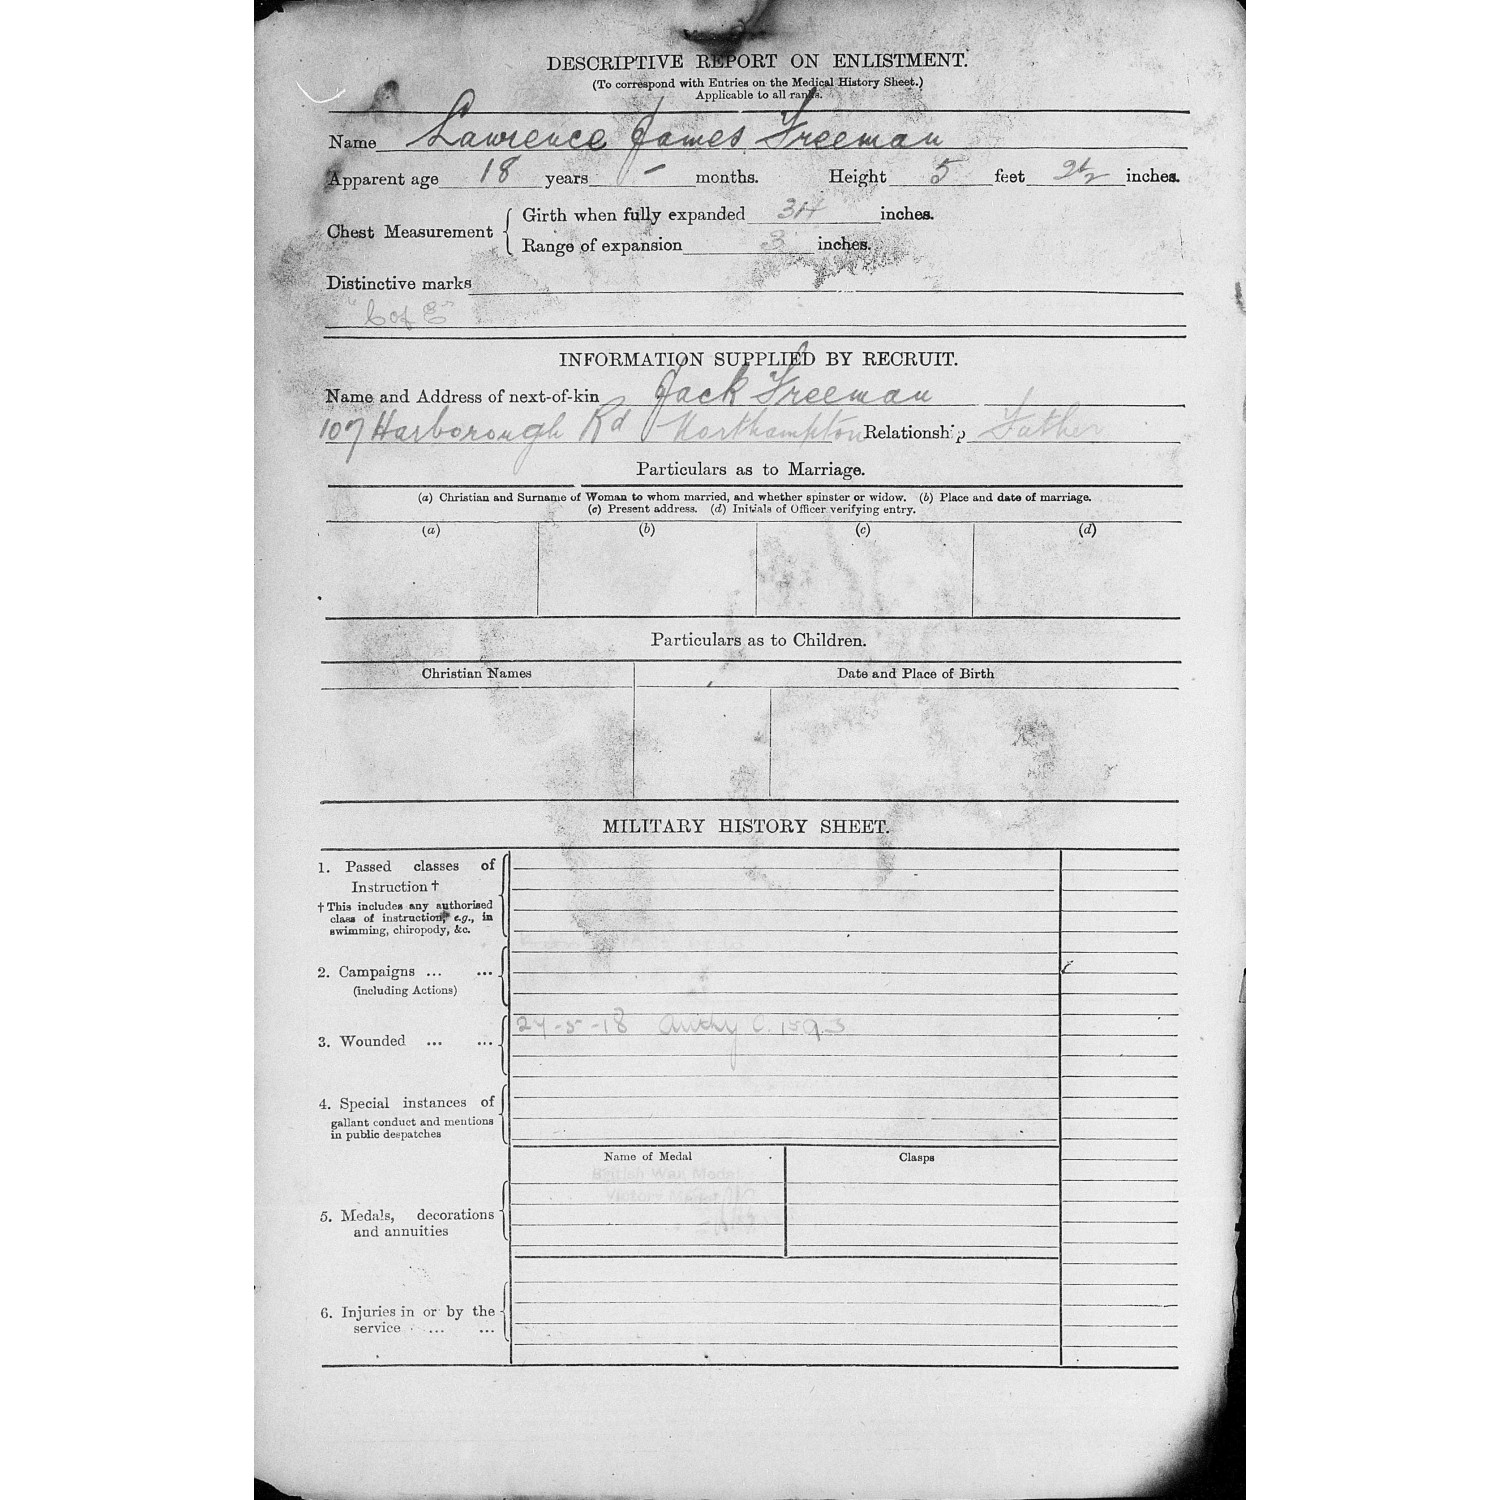 DESCRIPTIVE REPORT ON ENLISTMENT.
(To correspond with Entries on the Medical History Sheet.)
Applicable to all ranks.
Name Lawrence James Freeman
Apparent age 18 years - months. Height 5 feet 2½ inches.
Chest Measurement { Girth when fully expanded 34 inches.
Range of expansion 3 inches.
Distinctive marks
"C of E"
INFORMATION SUPPLIED BY RECRUIT.
Name and Address of next-of-kin Jack Freeman
107 Harborough Rd Northampton Relationship Father
Particulars as to Marriage.
(a) Christian and Surname of Woman to whom married, and whether spinster or widow. (b) Place and date of marriage.
(c) Present address. (d) Initials of Officer verifying entry.
(a) (b) (c) (d)
Particulars as to Children.
Christian Names Date and Place of Birth
MILITARY HISTORY SHEET.
1. Passed classes of
Instruction †
† This includes any authorised
class of instruction, e.g., in
swimming, chiropody, &c.
2. Campaigns ... ...
(including Actions)
27-5-18 Authy C.
3. Wounded ... ...
4. Special instances of
gallant conduct and mentions
in public despatches
Name of Medal Clasps
British War Medal
Victory Medal
5. Medals, decorations
and annuities
6. Injuries in or by the
service ... ...